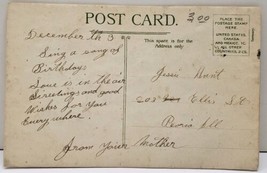 POST CARD.
2.00
December th 3
This space is for the address only.
PLACE THE
POSTAGE STAMP
HERE
UNITED STATES
CANADA
AND MEXICO, 1c.
ALL OTHER
COUNTRIES, 2c.
Sing a song of
Birthdays
Love is on the air
Greetings and good
Wishes for you
Everywhere.
From your Mother
Jessie Hunt
205 Ellis St
Ill